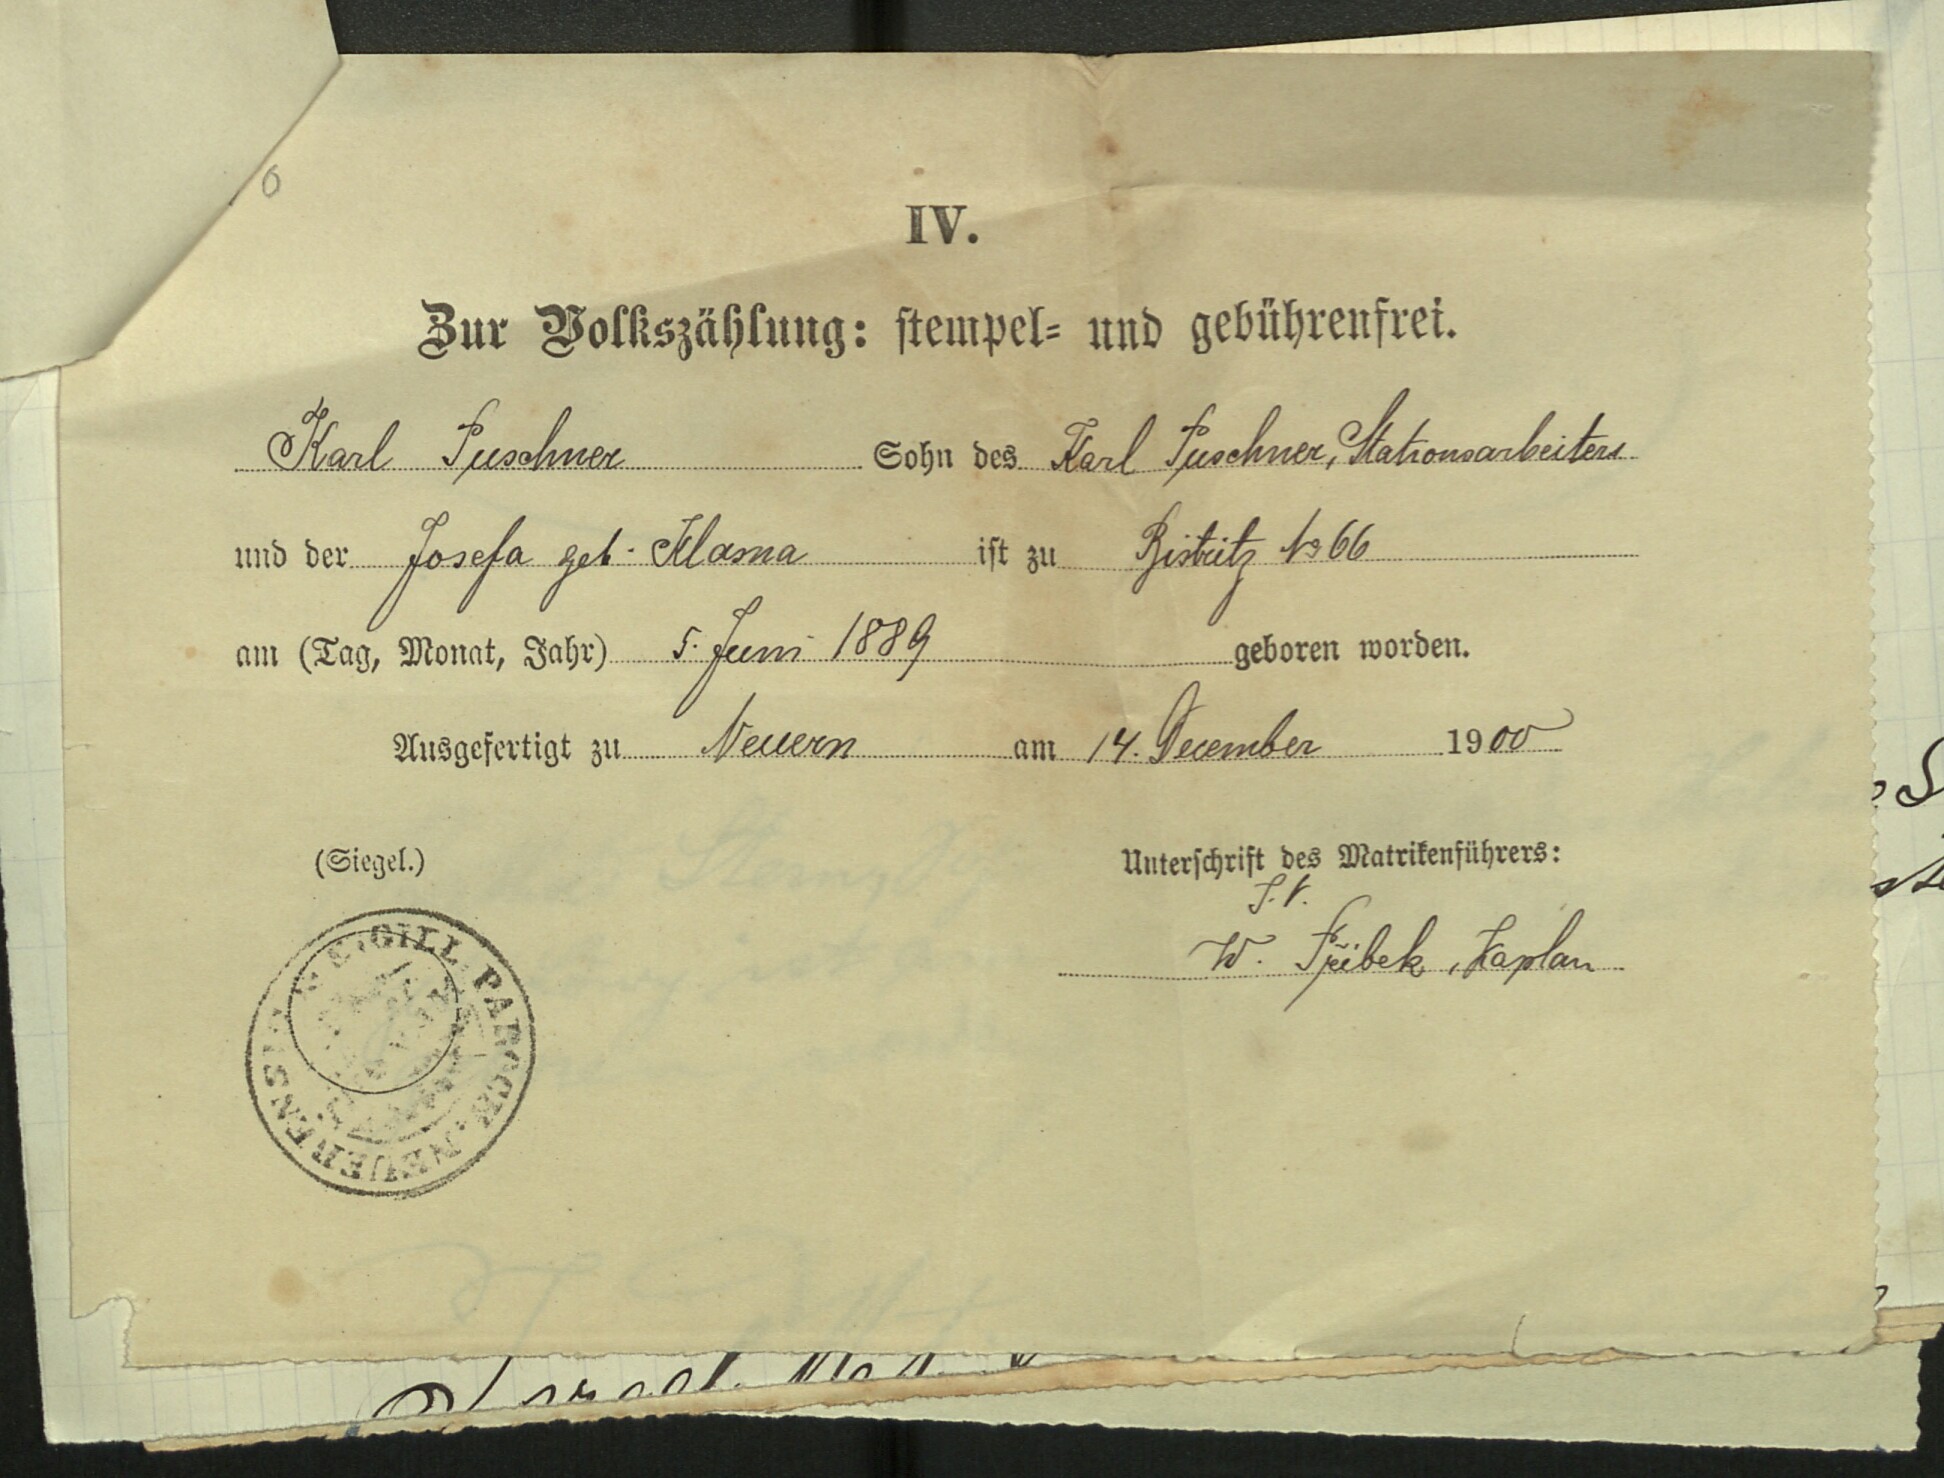 6
IV.
Zur Volkszählung: stempel- und gebührenfrei.
Karl Puschner Sohn des Karl Puschner, Stationsarbeiters
und der Josefa geb. Klasna ist zu Bistritz No 66
am (Tag, Monat, Jahr) 5. Juni 1889 geboren worden.
Ausgefertigt zu Neuern am 14. December 1900
(Siegel.)
Unterschrift des Matrikenführers:
W. Přibek, Kaplan
GILL. PAROCH. NEUERNENSIS